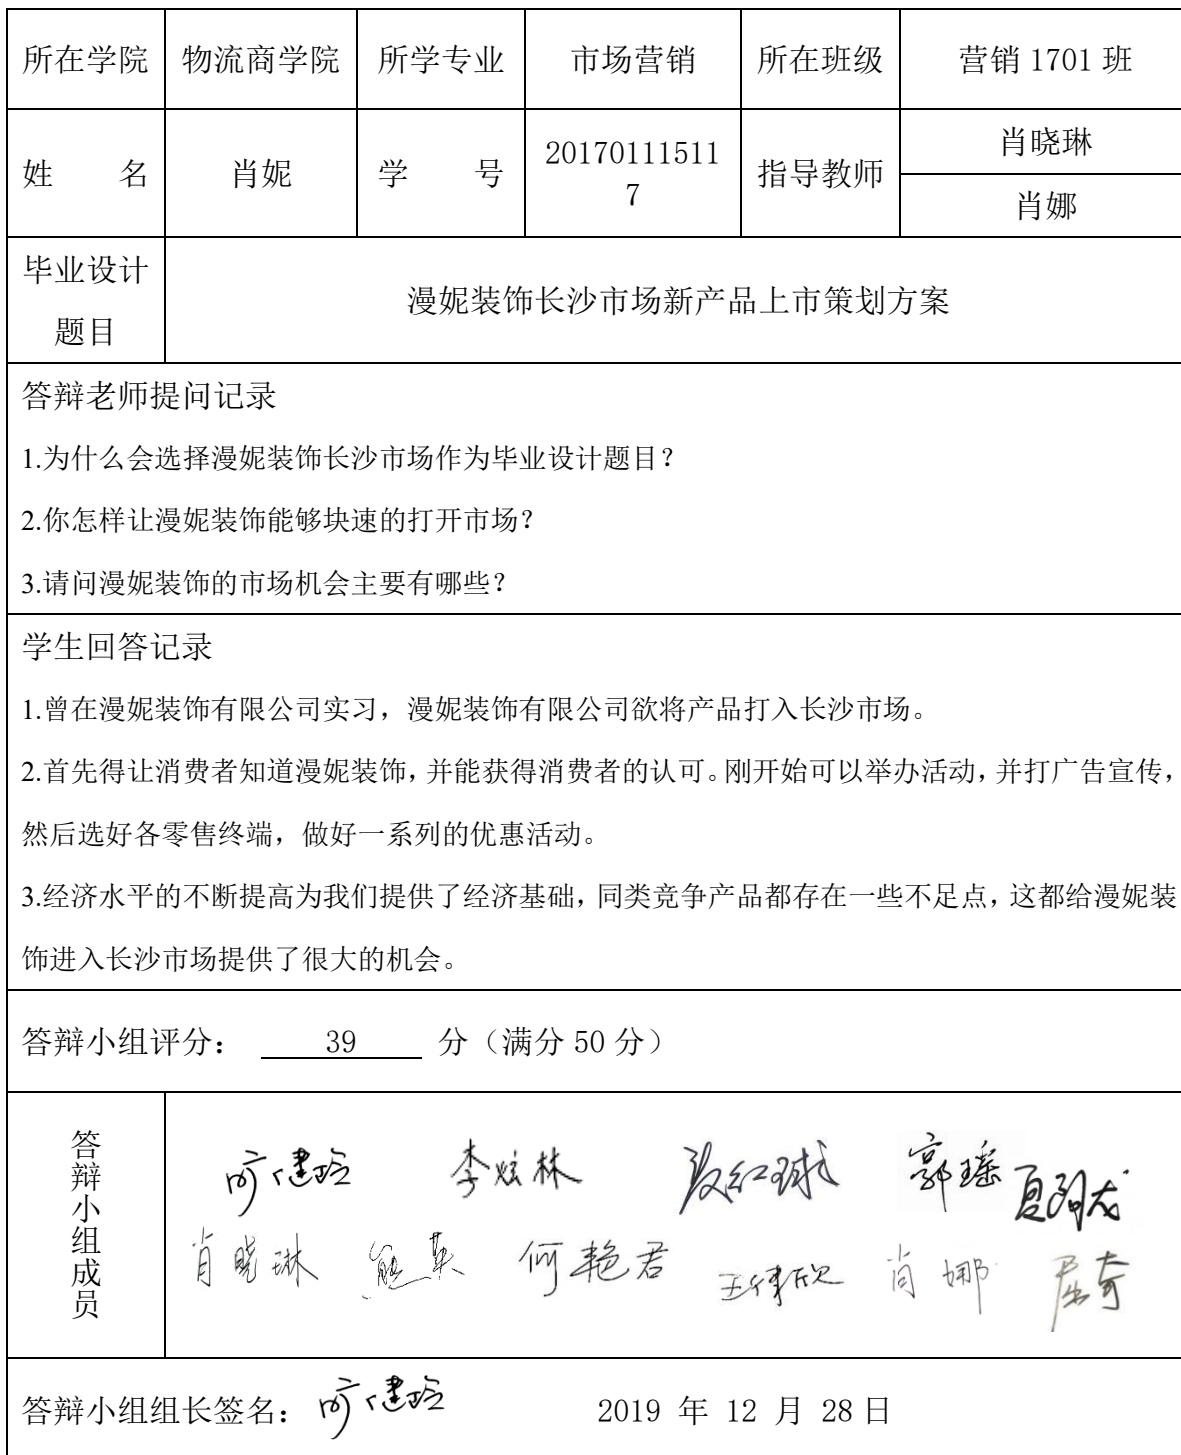 所在学院 物流商学院 所学专业 市场营销 所在班级 营销 1701 班
姓 名 肖妮 学 号 20170111511 指导教师 肖晓琳
7 肖娜
毕业设计
题目
漫妮装饰长沙市场新产品上市策划方案
答辩老师提问记录
1.为什么会选择漫妮装饰长沙市场作为毕业设计题目？
2.你怎样让漫妮装饰能够块速的打开市场？
3.请问漫妮装饰的市场机会主要有哪些？
学生回答记录
1.曾在漫妮装饰有限公司实习，漫妮装饰有限公司欲将产品打入长沙市场。
2.首先得让消费者知道漫妮装饰，并能获得消费者的认可。刚开始可以举办活动，并打广告宣传，
然后选好各零售终端，做好一系列的优惠活动。
3.经济水平的不断提高为我们提供了经济基础，同类竞争产品都存在一些不足点，这都给漫妮装
饰进入长沙市场提供了很大的机会。
答辩小组评分： 39 分（满分 50 分）
答辩小组成员
李炫林 郭瑶
肖晓琳 熊英 何艳君 肖娜 屈奇
答辩小组组长签名： 2019 年 12 月 28 日